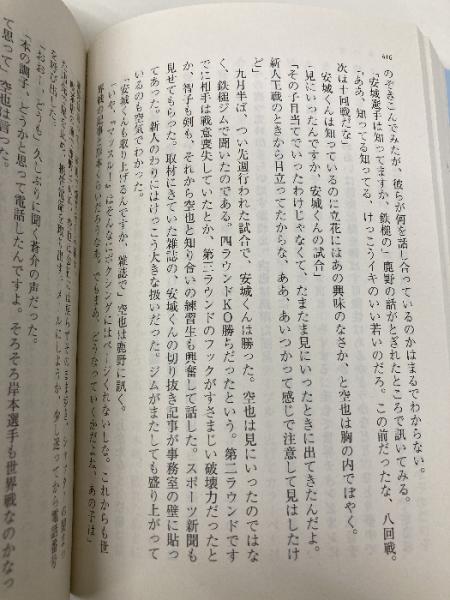 406
のぞきこんでみたが、彼らが何を話し合っているのかはまるでわからない。
「安城選手は知ってますか、鉄槌の」鹿野の話がとぎれたところで訊いてみる。
「ああ、知ってる知ってる、けっこうイキのいい若いのだろ。この前だったな、八回戦。
次は十回戦だな」
安城くんは知っているのに立花にはあの興味のなさか、と空也は胸の内でぼやく。
「見にいったんですか、安城くんの試合」
「その子目当てでいったわけじゃなくて、たまたま見にいったときに出てきたんだよ。
新人王戦のときから目立ってたからな、ああ、あいつかって感じで注意して見はしたけ
ど」
九月半ば、つい先週行われた試合で、安城くんは勝った。空也は見にいったのではな
く、鉄槌ジムで聞いたのである。四ラウンドKO勝ちだったという。第二ラウンドです
でに相手は戦意喪失していたとか、第三ラウンドのフックがすさまじい破壊力だったと
か、智子も剣も、それから空也と知り合いの練習生も興奮して話した。スポーツ新聞も
見せてもらった。取材にきていた雑誌の、安城くんの切り抜き記事が事務室の壁に貼っ
てあった。新人のわりにはけっこう大きな扱いだった。ジムがまたしても盛り上がって
いるのも空気でわかった。
「安城くんも取り上げるんですか、雑誌で」空也は鹿野に訊く。
「いや、『マッスル！』はそんなにボクシングにはページくれないしな。これからも世
「おおー、どうも」久しぶりに聞く蒼介の声だった。
「本の調子、どうかと思って電話したんですよ。そろそろ岸本選手も世界戦なのかなっ
て思って」空也は言った。